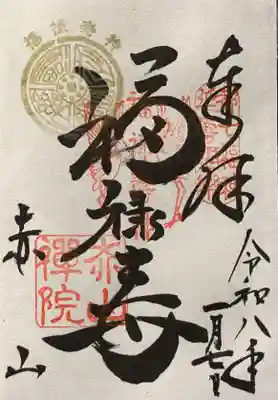 奉拝
令和八年
一月七日
福禄寿
赤山
禪院
赤山